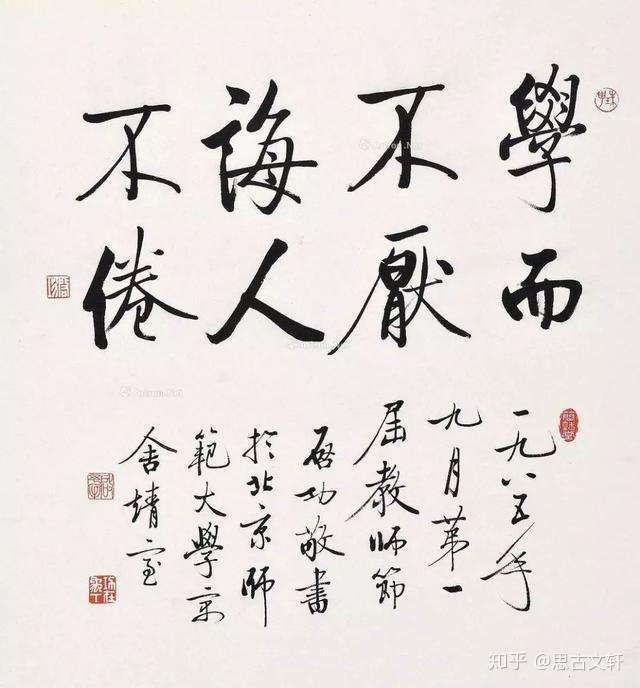 學而
不厭
誨人
不倦
一九八五年
九月苐一
屆教師節
啓功敬書
於北京師
範大學
舍
知乎 @思古文轩